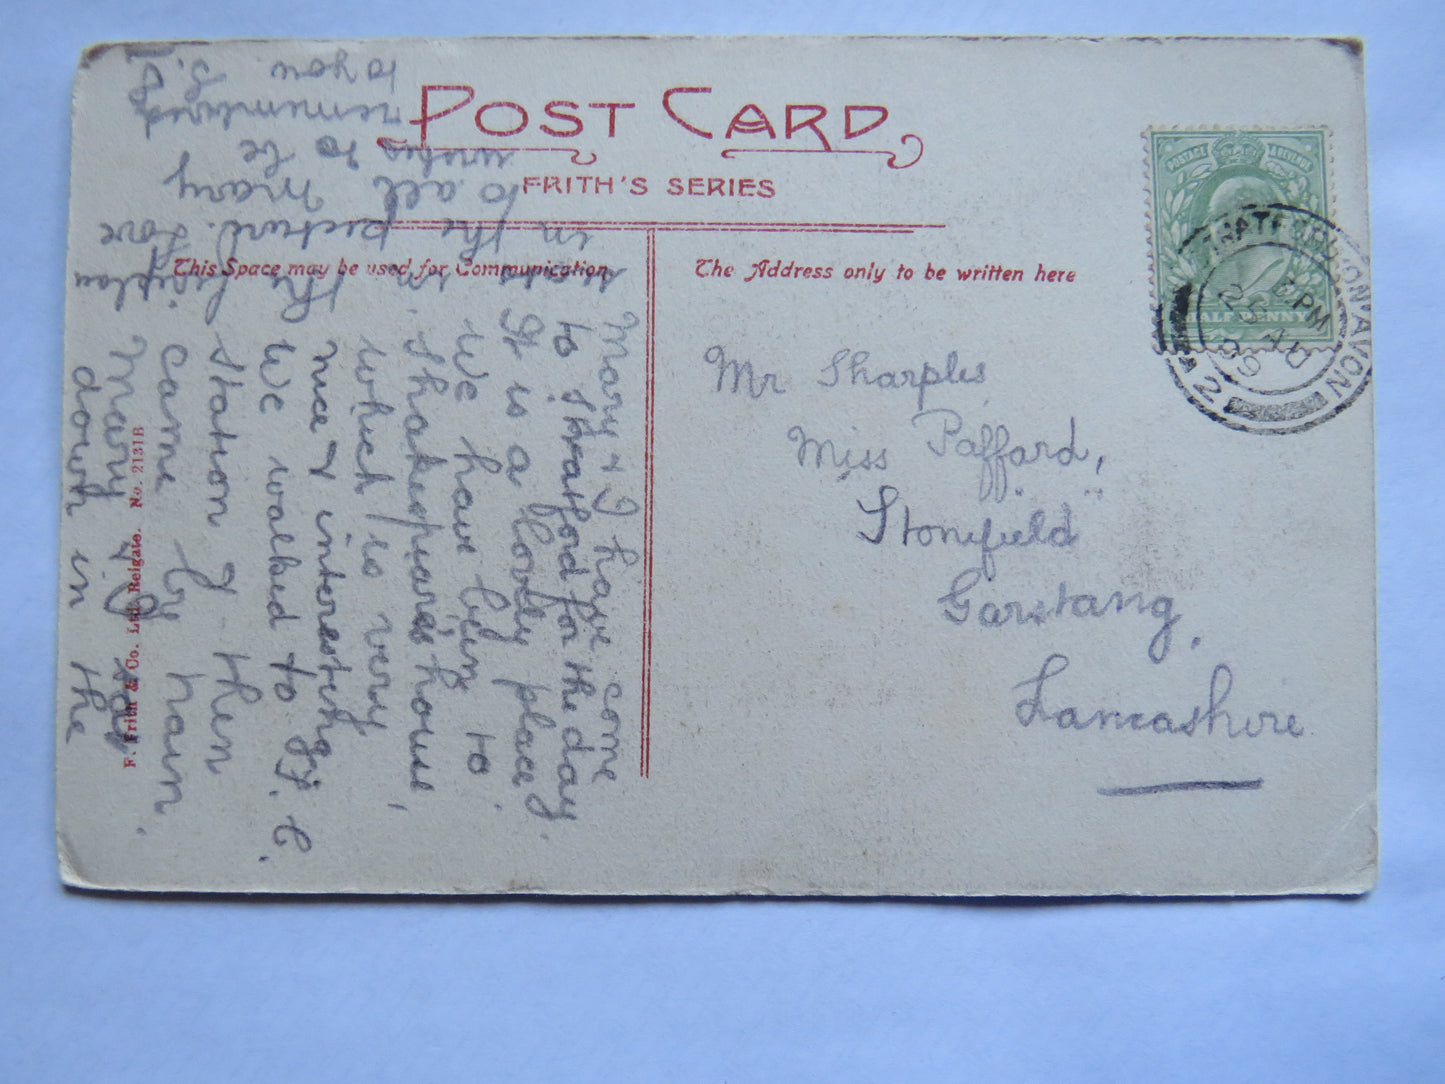 POST CARD
FRITH'S SERIES
This Space may be used for Communication
The Address only to be written here
POSTAGE
HALF PENNY
STRATFORD-ON-AVON
PM
25 AU
09
2
Mr Sharples
Miss Pafford,
"Stonefield"
Garstang,
Lancashire
Mary & I have come
to Stratford for the day.
It is a lovely place.
We have been to
Shakespeare's house,
which is very
nice & interesting.
We walked to S. C.
Station & then
came by train.
Mary & I sat
down in the
seats in the
in the picture. Love
to all Mary
wishes to be
remembered
to you
F. Frith & Co. Ltd. Reigate. No. 2131B